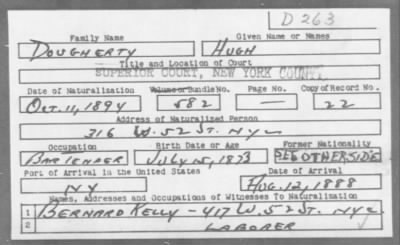 D 263
Family Name Given Name or Names
DOUGHERTY HUGH
Title and Location of Court
SUPERIOR COURT, NEW YORK COUNTY
Date of Naturalization Volume or Bundle No. Page No. Copy of Record No.
OCT. 11, 1894 582 — 22
Address of Naturalized Person
316 W. 52 ST. NYC
Occupation Birth Date or Age Former Nationality
BARTENDER JULY 15, 1873 SEE OTHER SIDE
Port of Arrival in the United States Date of Arrival
NY AUG. 12, 1888
Names, Addresses and Occupations of Witnesses To Naturalization
1 BERNARD KELLY - 417 W. 52 ST. NYC.
2 LABORER